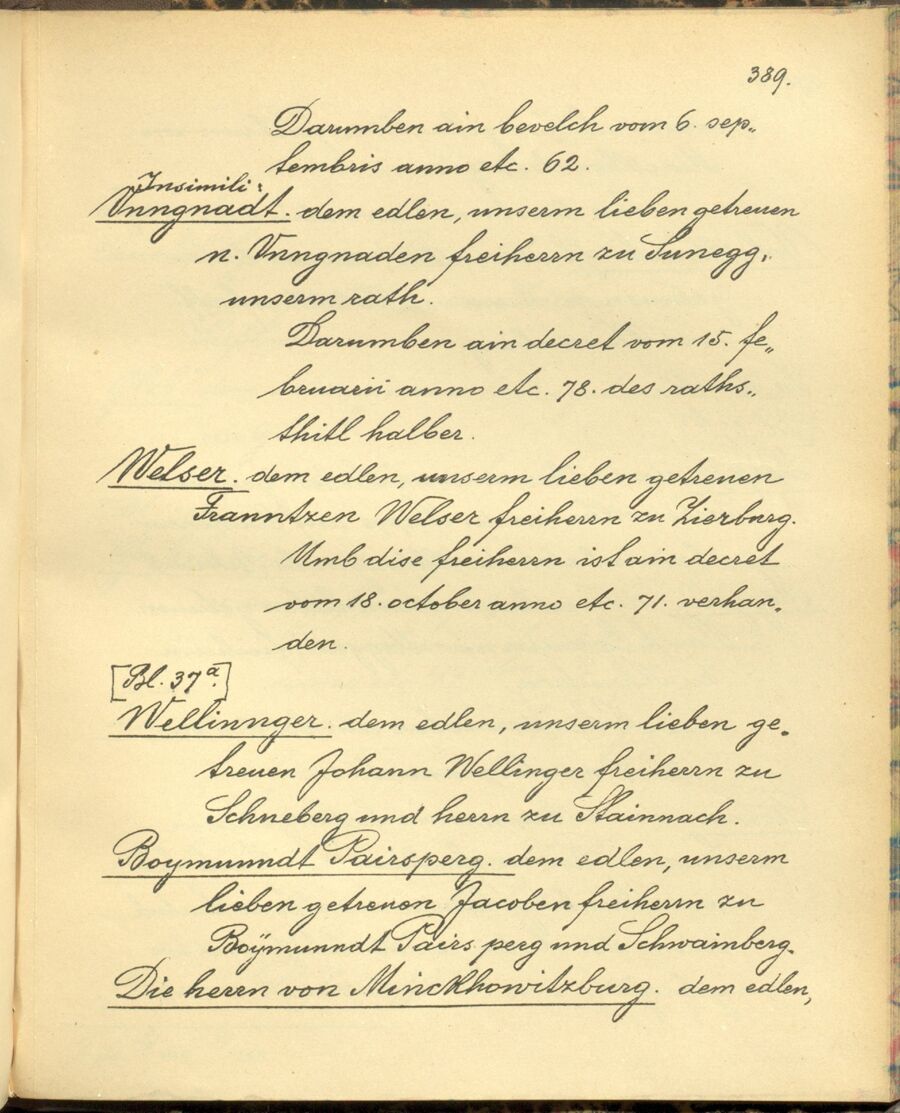 389.
Darumben ain bevelch vom 6. sep„
tembris anno etc. 62.
Insimili:
Vnngnadt. dem edlen, unserm lieben getreuen
n. Vnngnaden freiherrn zu Sunegg,
unserm rath.
Darumben ain decret vom 15. fe„
bruarii anno etc. 78. des raths„
thitl halber.
Welser. dem edlen, unserm lieben getreuen
Franntzen Welser freiherrn zu Zierburg.
Umb dise freiherrn ist ain decret
vom 18. october anno etc. 71. verhan„
den.
[Bl. 37a.]
Wellinnger. dem edlen, unserm lieben ge„
treuen Johann Wellinger freiherrn zu
Schneberg und herrn zu Stainnach.
Boymunndt Pairsperg. dem edlen, unserm
lieben getreuen Jacoben freiherrn zu
Boÿmunndt Pairs perg und Schwainberg.
Die herrn von Minckhowitzburg. dem edlen,